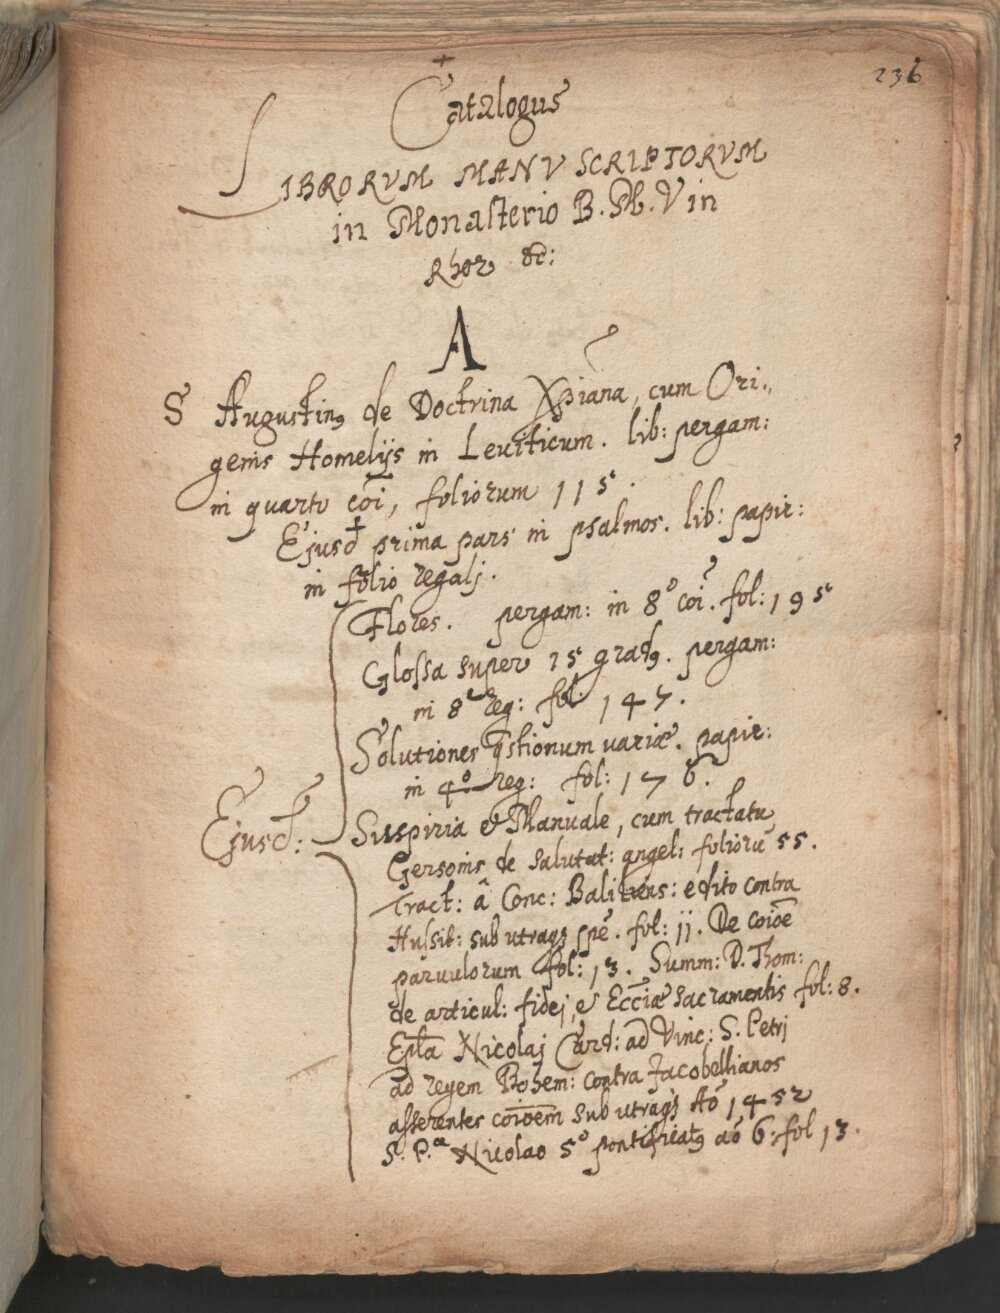 236
+
Catalogus
LIBRORVM MANVSCRIPTORVM
in Monasterio B. M. V in
Rhor &c:
A
S Augustin9 de Doctrina Xpiana, cum Ori-
genis Homelijs in Leviticum. lib: pergam:
in quarto coi, foliorum 115.
Ejusd prima pars in psalmos. lib: papir:
in folio regalj.
Flores. pergam: in 8o coi. fol: 195
Glossa super 15 grad9. pergam:
in 8o reg: fol: 147.
Solutiones qstionum variæ. papir:
in 4o reg: fol: 176.
Ejusd:
Suspiria et Manuale, cum tractatu
Gersonis de salutat: angel: folioru 55.
Tract: â Conc: Basiliens: edito contra
Hussit: sub utraq3 spē. fol: jj. De coiōē
parvulorum fol: 13. Summ: D. Thom:
de articul: fidej, et Eccliæ sacramentis fol: 8.
Epla Nicolaj Card: ad Vinc: S. Petrj
ad regem Bohem: contra Jacobellianos
asserentes coiōēm sub utraq3 Aō 1452
S. P.a Nicolao 5o pontificat9 aō 6: fol 13.